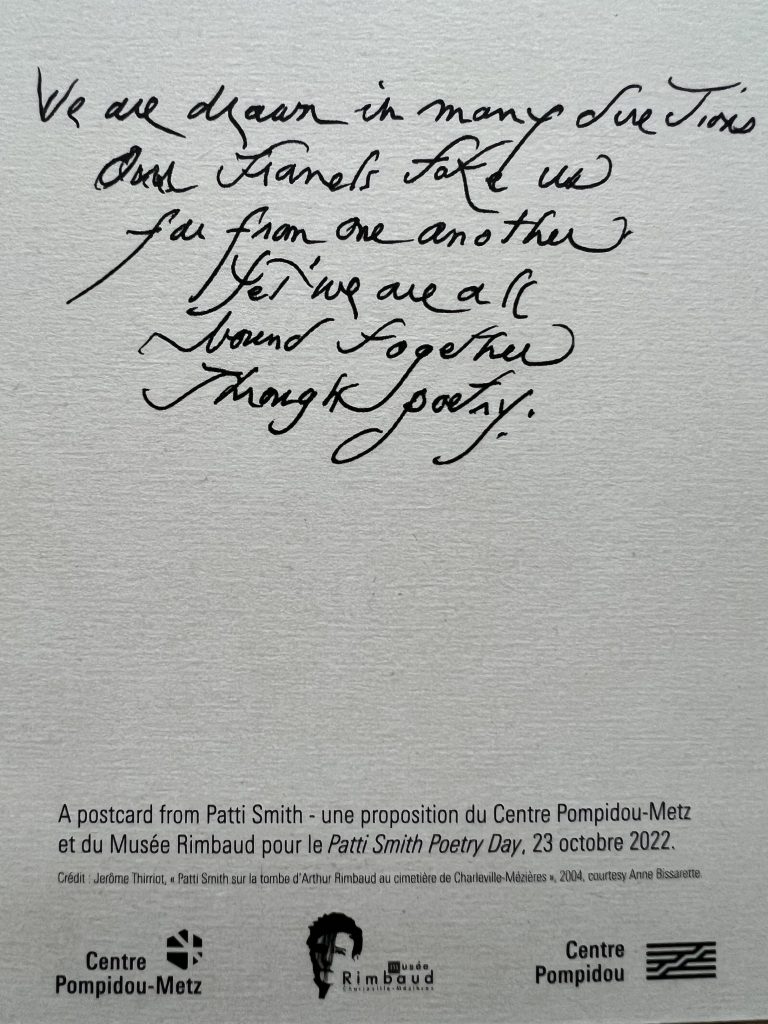 We are drawn in many directions
Our travels take us
far from one another
Yet we are all
bound together
Through poetry.
A postcard from Patti Smith - une proposition du Centre Pompidou-Metz
et du Musée Rimbaud pour le Patti Smith Poetry Day, 23 octobre 2022.
Crédit : Jerôme Thirriot, « Patti Smith sur la tombe d'Arthur Rimbaud au cimetière de Charleville-Mézières », 2004, courtesy Anne Bissarette.
Centre
Pompidou-Metz
musée
Rimbaud
Charleville-Mézières
Centre
Pompidou